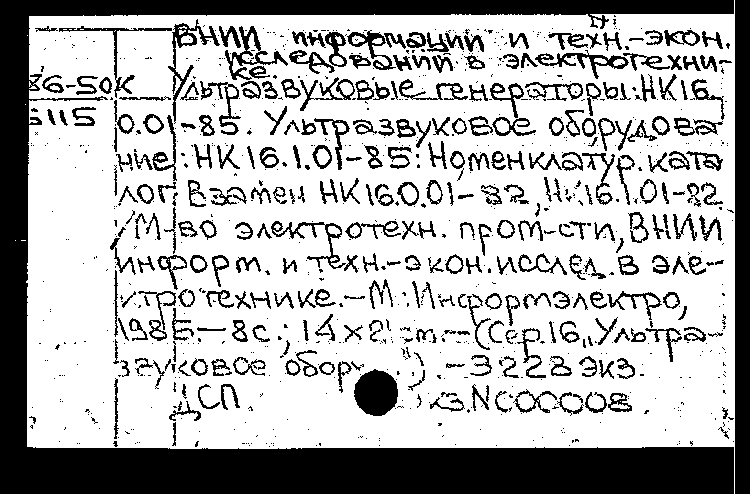 ВНИИ информации и техн.-экон.
исследований в электротехни-
ке.
86-50К Ультразвуковые генераторы: НК16.
5115 0.01-85. Ультразвуковое оборудова
ние: НК 16.1.01-85: Номенклатур. ката
лог. Взамен НК16.0.01-82, НК16.1.01-82
/М-во электротехн. пром-сти, ВНИИ
информ. и техн.-экон. исслед. в эле-
ктротехнике.-М.: Информэлектро,
1985.-8с.; 14×21 см.-(Сер.16, „Ультра-
звуковое обору ).-3228 экз.
ДСП. кз. N 000008.